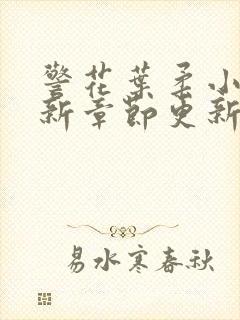 警花葉柔小
新章節更新
易水寒春秋